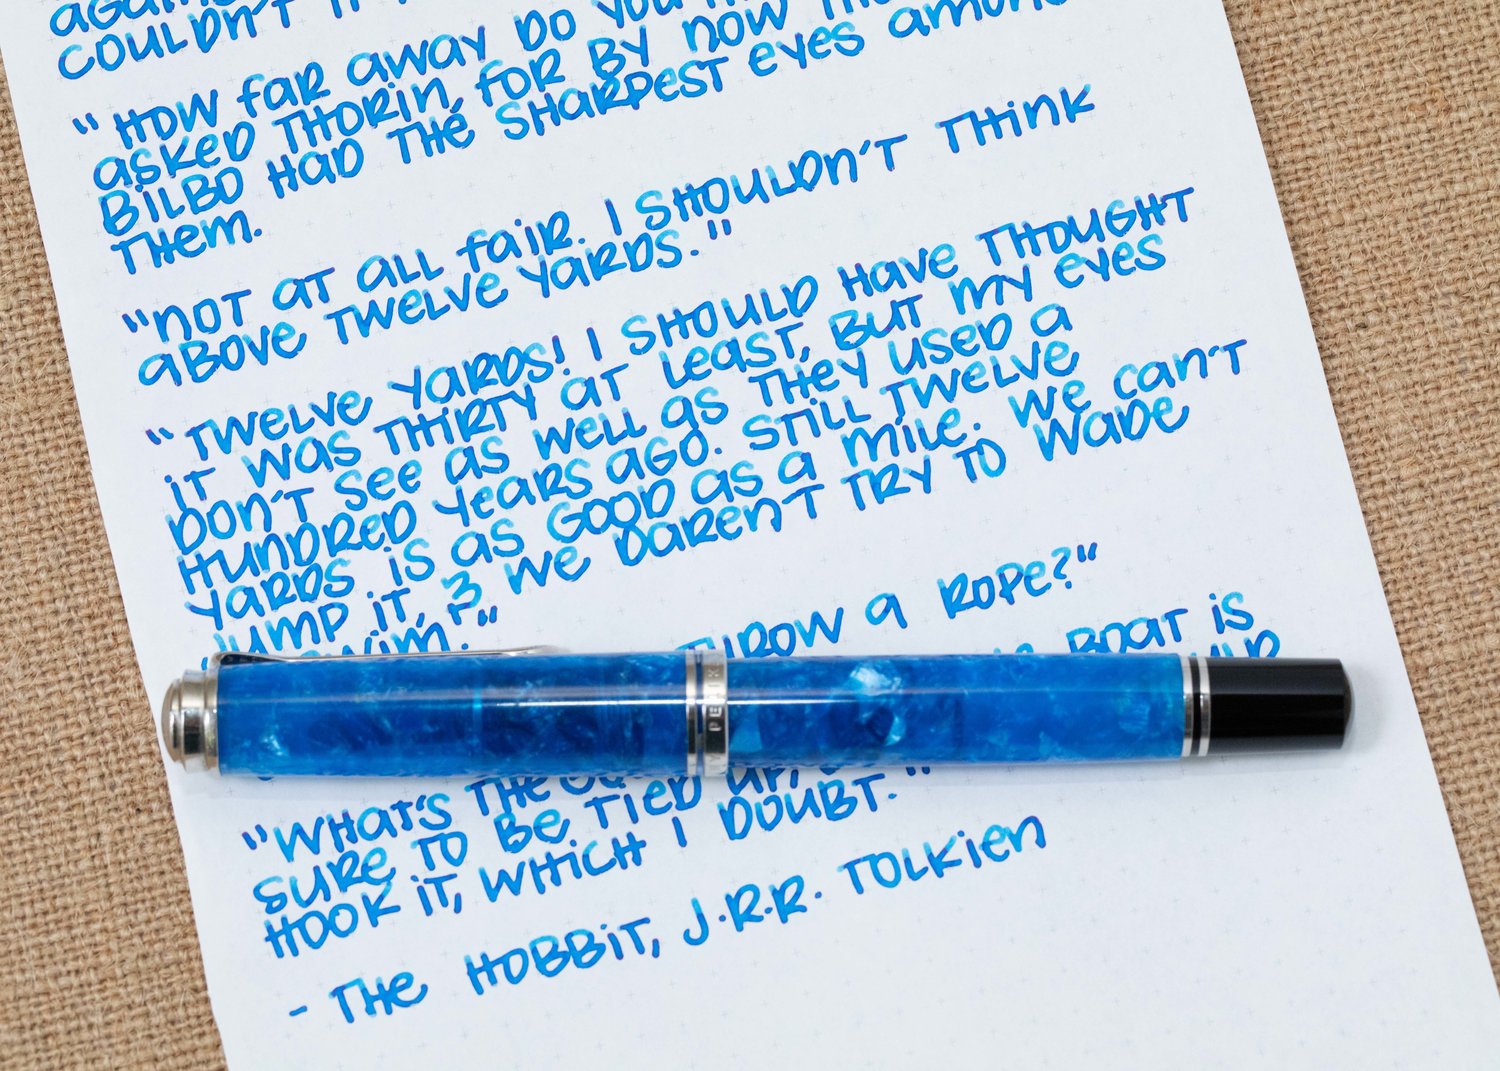 COULDN'T
"HOW FAR AWAY DO YOU
ASKED THORIN, FOR BY NOW
BILBO HAD THE SHARPEST EYES AMONG
THEM.
"NOT AT ALL FAIR. I SHOULDN'T THINK
ABOVE TWELVE YARDS."
"TWELVE YARDS! I SHOULD HAVE THOUGHT
IT WAS THIRTY AT LEAST, BUT MY EYES
DON'T SEE AS WELL AS THEY USED A
HUNDRED YEARS AGO. STILL TWELVE
YARDS IS AS GOOD AS A MILE. WE CAN'T
JUMP IT, & WE DAREN'T TRY TO WADE
THROW A ROPE?"
BOAT IS
"WHAT'S THE
SURE TO BE TIED UP,
HOOK IT, WHICH I DOUBT."
- THE HOBBIT, J.R.R. TOLKIEN